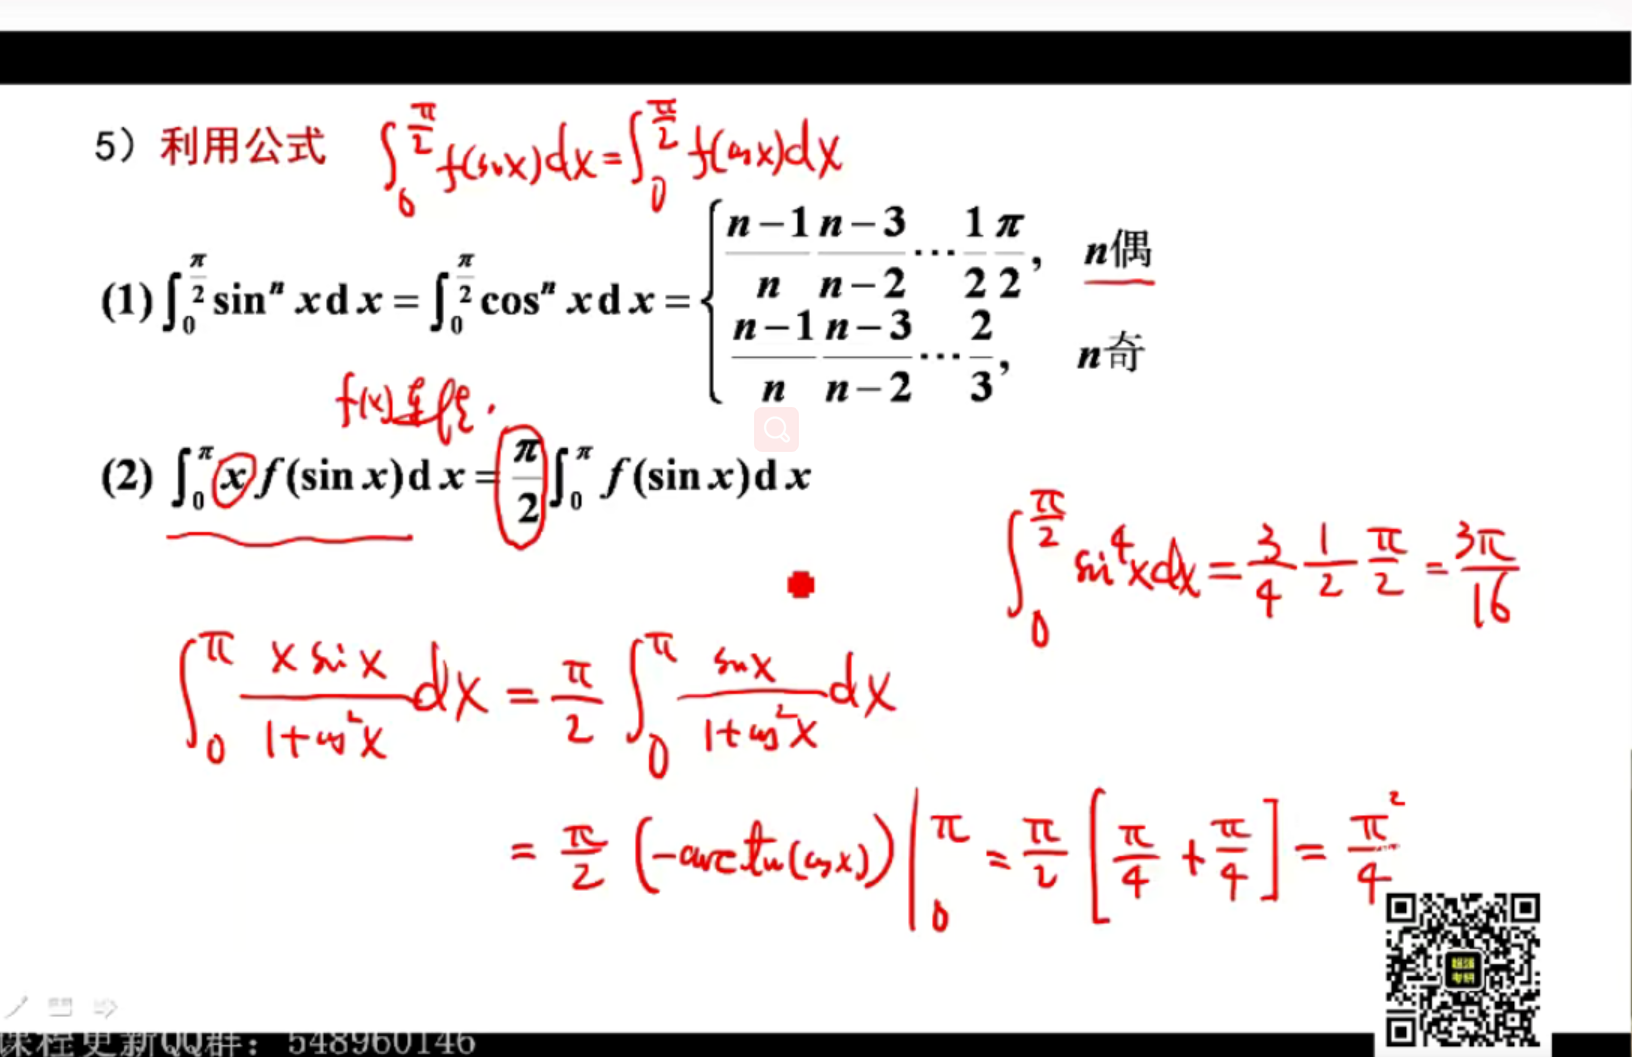 5）利用公式 ∫₀^{π/2} f(sinx)dx = ∫₀^{π/2} f(cosx)dx
(1) ∫₀^{π/2} sinⁿ x d x = ∫₀^{π/2} cosⁿ x d x = { \frac{n-1}{n} \frac{n-3}{n-2} ⋯ \frac{1}{2} \frac{π}{2}, n偶
\frac{n-1}{n} \frac{n-3}{n-2} ⋯ \frac{2}{3}, n奇
f(x)连续.
(2) ∫₀^π x f(sin x)d x = \frac{π}{2} ∫₀^π f(sin x)d x
∫₀^{π/2} sin⁴xdx = \frac{3}{4} \frac{1}{2} \frac{π}{2} = \frac{3π}{16}
∫₀^π \frac{x sinx}{1+cos²x} dx = \frac{π}{2} ∫₀^π \frac{sinx}{1+cos²x} dx
= \frac{π}{2} (-arctan(cosx)) |₀^π = \frac{π}{2} [\frac{π}{4} + \frac{π}{4}] = \frac{π²}{4}
课程更新QQ群：548960146